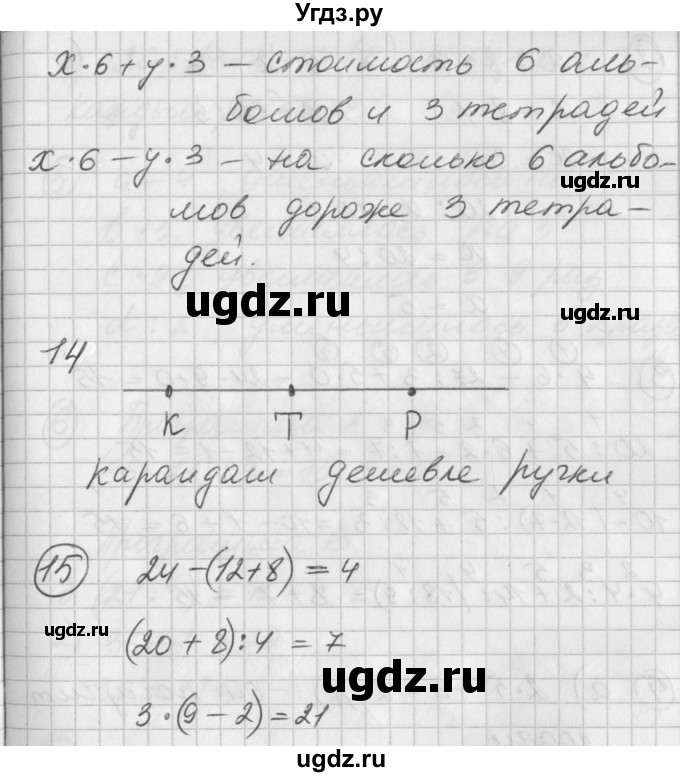 Угдз.ру
x·6+y·3 – стоимость 6 аль-
бомов и 3 тетрадей
x·6–y·3 – на сколько 6 альбо-
ugdz.ru
мов дороже 3 тетра-
дей.
ugdz.ru
ugdz.ru
14
К Т Р
карандаш дешевле ручки
15 24–(12+8)=4
ugdz.ru
(20+8):4=7
ugdz.ru
3·(9–2)=21
ugdz.ru